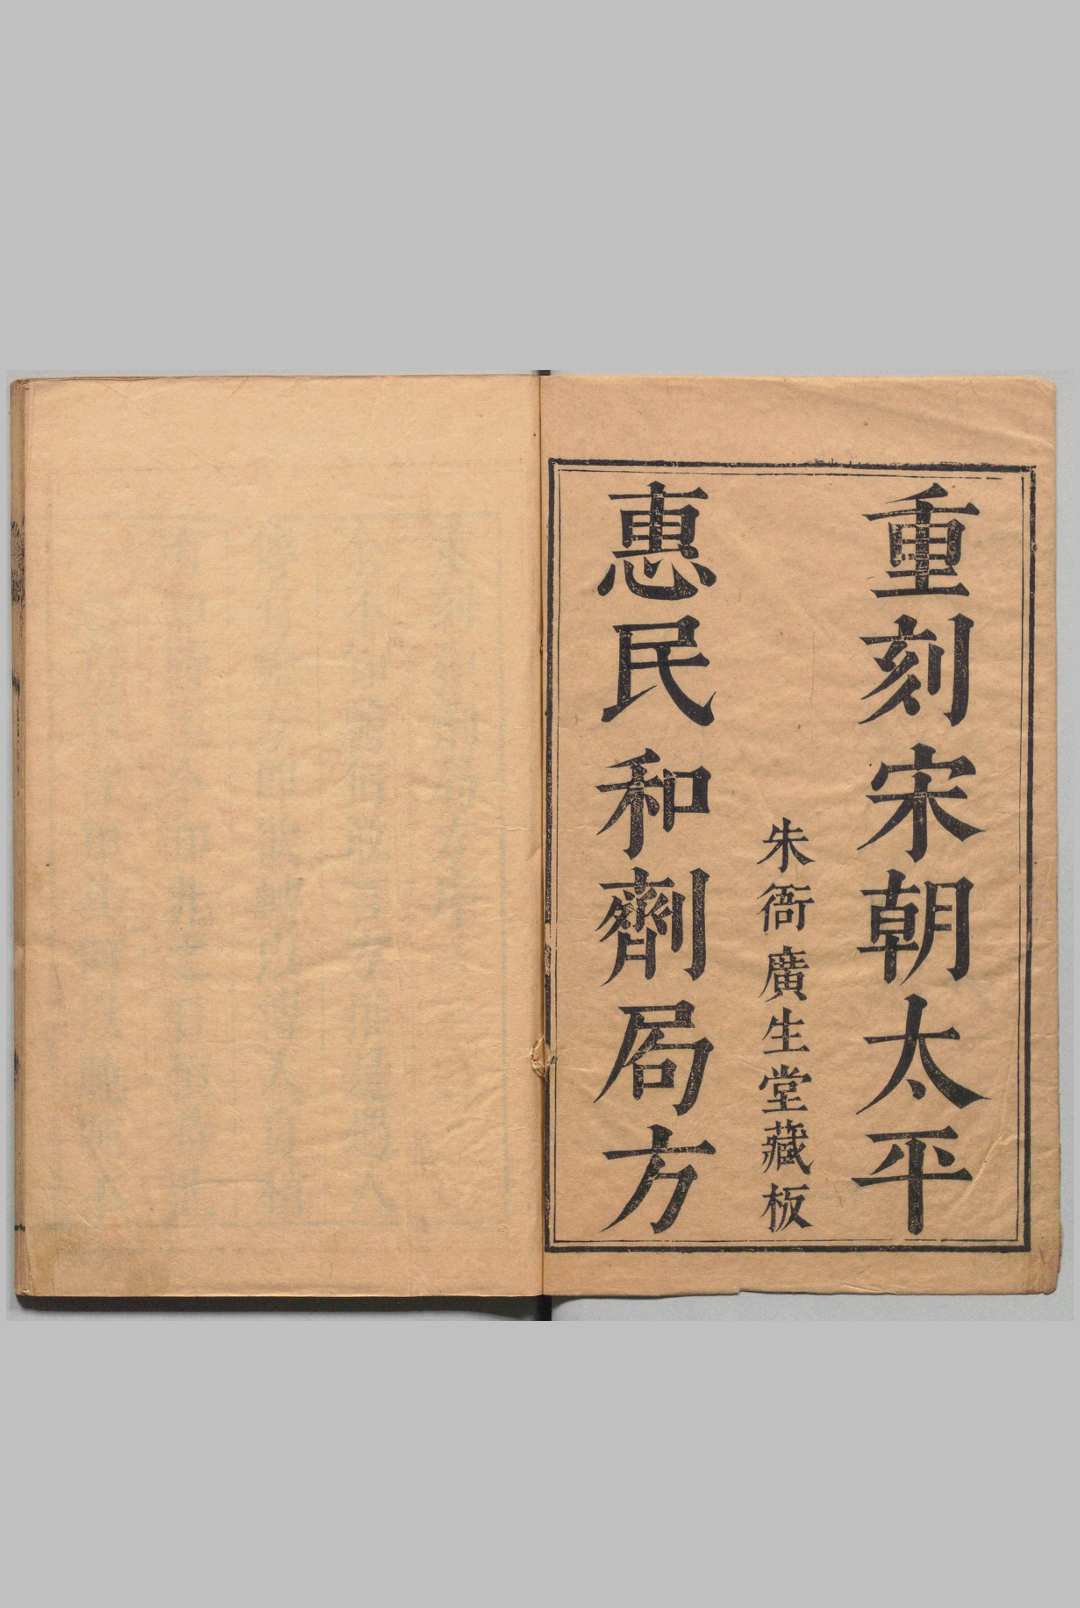 重刻宋朝太平
朱衙廣生堂藏板
惠民和劑局方